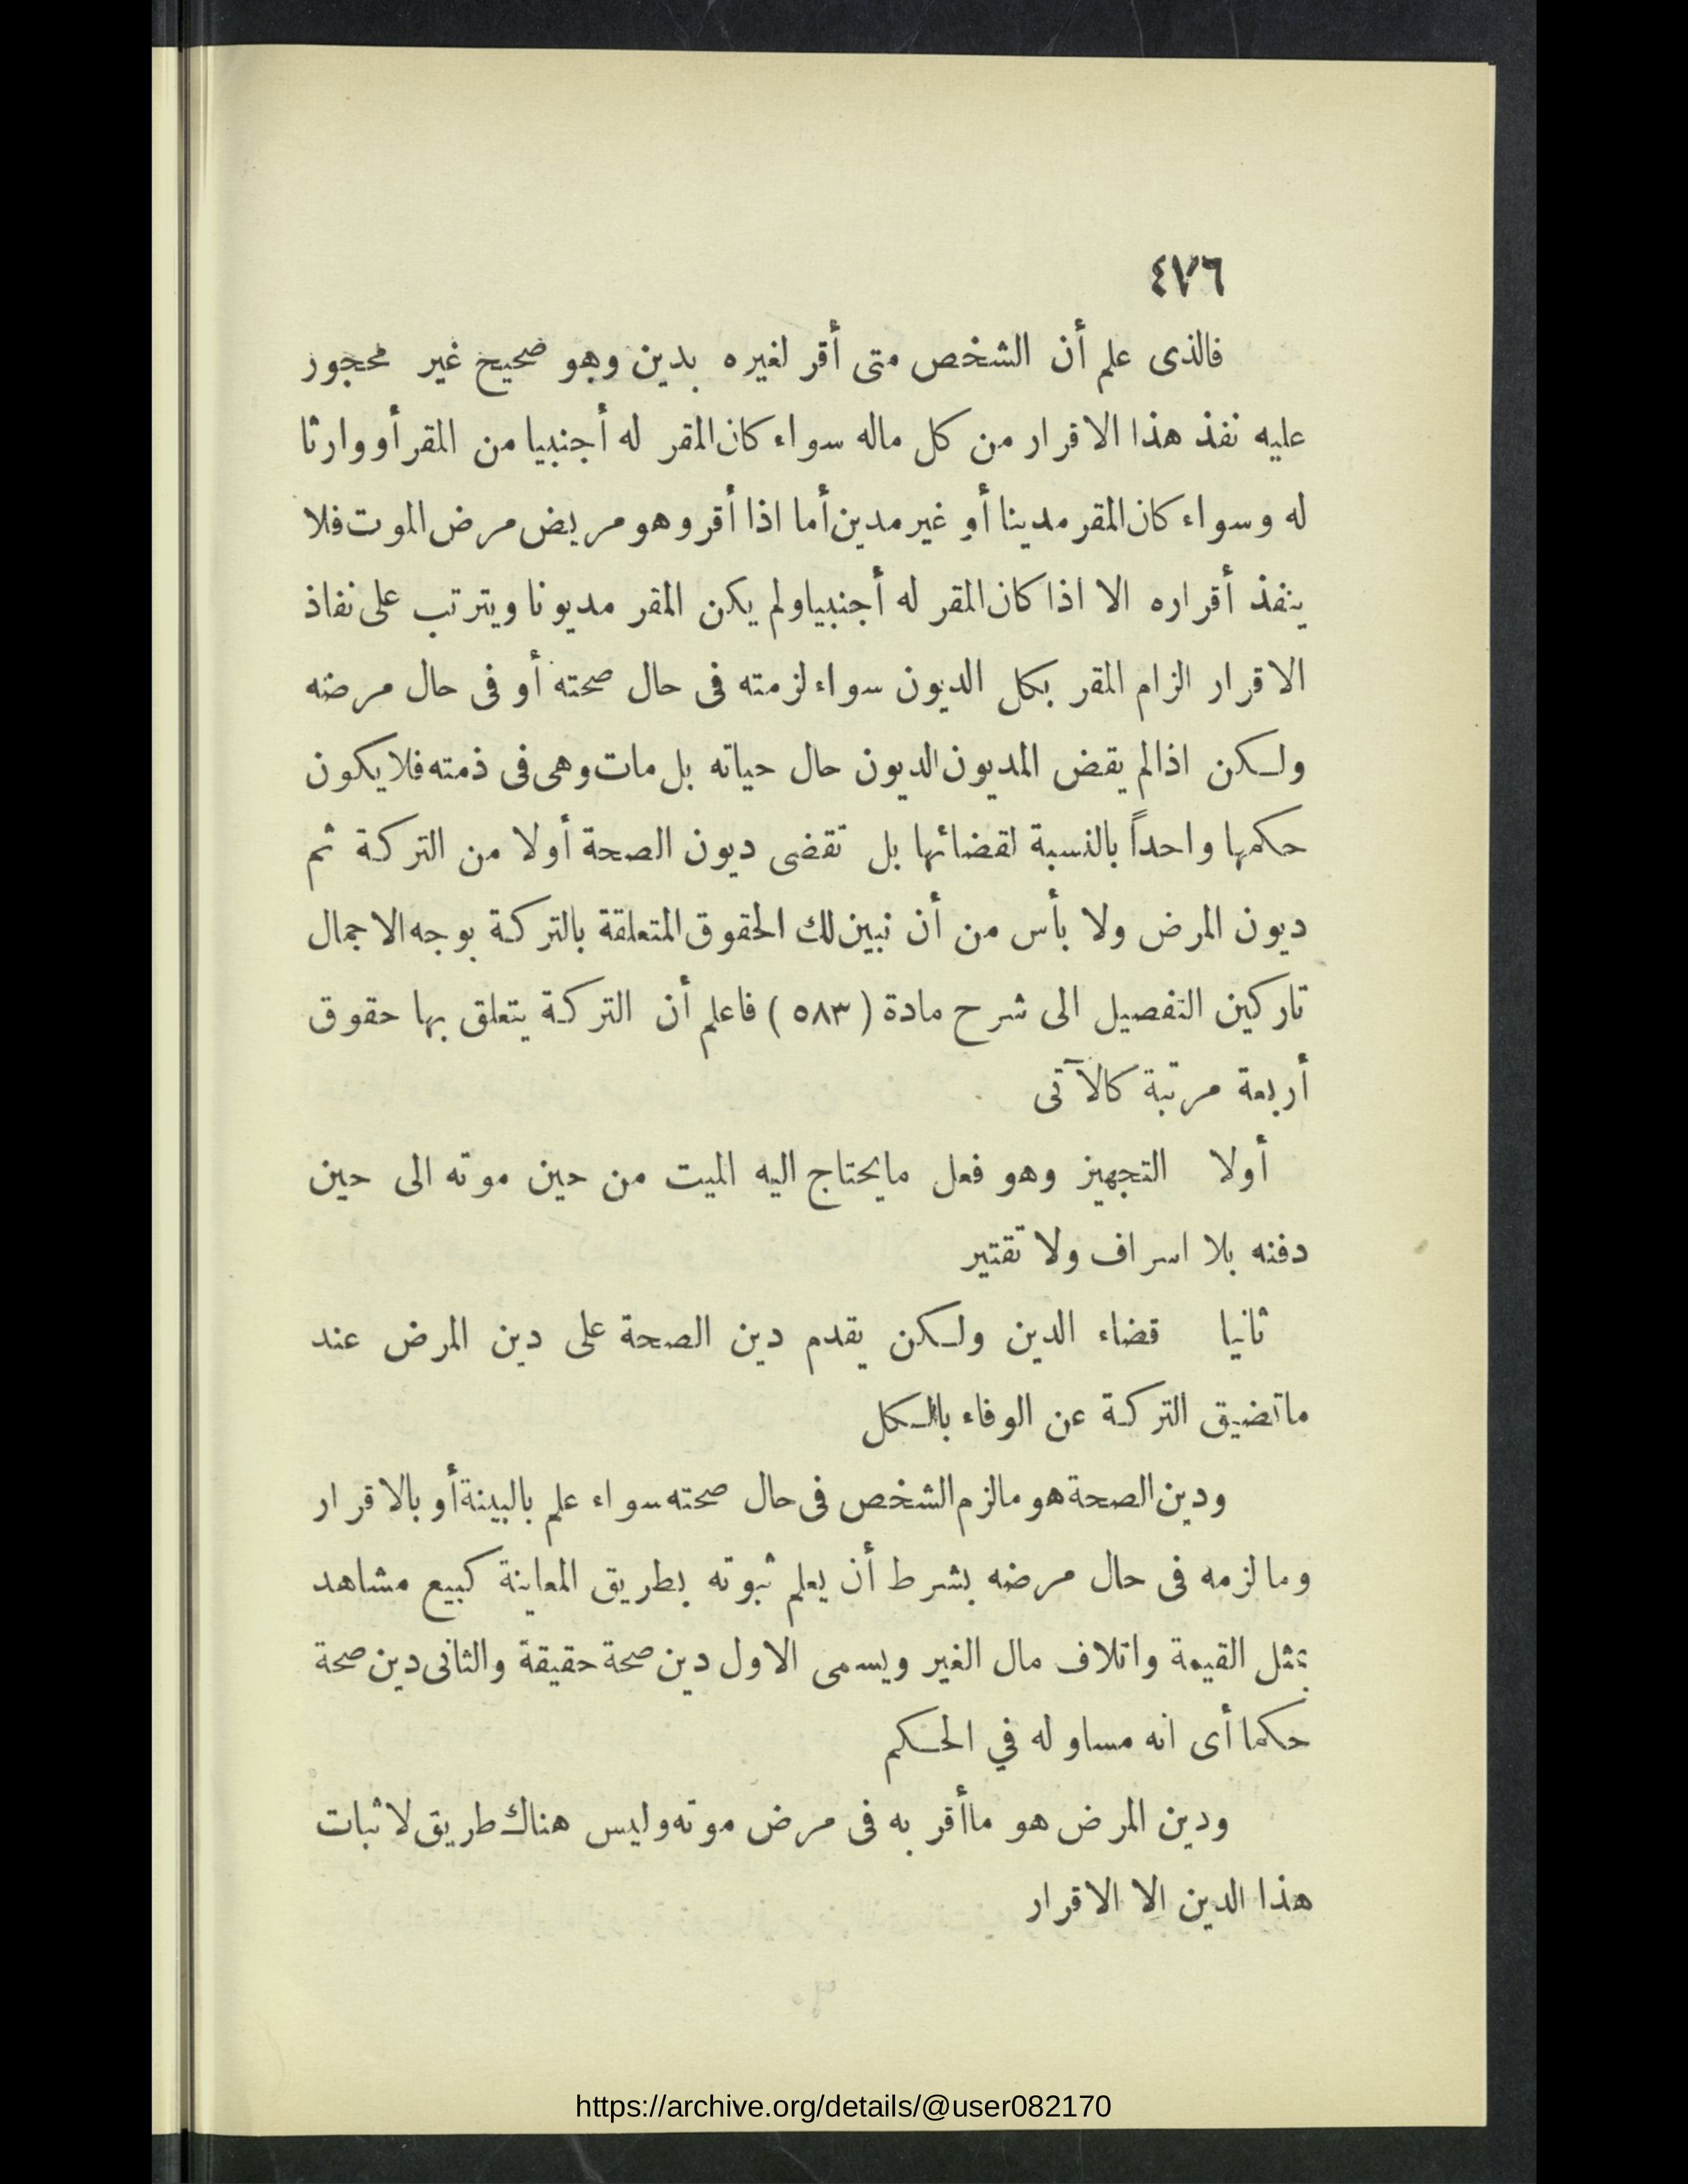 ٤٧٦
فالذى علم أن الشخص متى أقر لغيره بدين وهو صحيح غير محجور
عليه نفذ هذا الاقرار من كل ماله سواء كان المقر له أجنبيا من المقر أو وارثا
له وسواء كان المقر مدينا أو غير مدين أما اذا أقر وهو مريض مرض الموت فلا
ينفذ أقراره الا اذا كان المقر له أجنبيا ولم يكن المقر مديونا ويترتب على نفاذ
الاقرار الزام المقر بكل الديون سواء لزمته فى حال صحته أو فى حال مرضه
ولكن اذا لم يقض المديون الديون حال حياته بل مات وهى فى ذمته فلا يكون
حكمها واحداً بالنسبة لقضائها بل تقضى ديون الصحة أولا من التركة ثم
ديون المرض ولا بأس من أن نبين لك الحقوق المتعلقة بالتركة بوجه الاجمال
تاركين التفصيل الى شرح مادة (٥٨٣) فاعلم أن التركة يتعلق بها حقوق
أربعة مرتبة كالآتى
أولا التجهيز وهو فعل مايحتاج اليه الميت من حين موته الى حين
دفنه بلا اسراف ولا تقتير
ثانيا قضاء الدين ولكن يقدم دين الصحة على دين المرض عند
ماتضيق التركة عن الوفاء بالكل
ودين الصحة هو مالزم الشخص فى حال صحته سواء علم بالبينة أو بالاقرار
وما لزمه فى حال مرضه بشرط أن يعلم ثبوته بطريق المعاينة كبيع مشاهد
بمثل القيمة واتلاف مال الغير ويسمى الاول دين صحة حقيقة والثانى دين صحة
حكما أى انه مساو له في الحكم
ودين المرض هو ماأقر به فى مرض موته وليس هناك طريق لاثبات
هذا الدين الا الاقرار
https://archive.org/details/@user082170